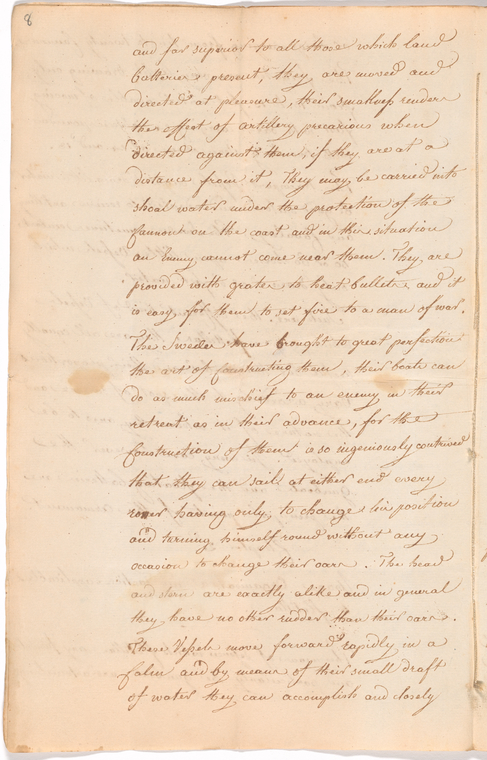 8
and far superior to all those which land
batteries present, they are moved and
directed at pleasure, their smallness renders
the effect of artillery precarious when
directed against them, if they are at a
distance from it, They may be carried into
shoal water under the protection of the
Cannont on the coast and in this situation
an Enemy cannot come near them. They are
provided with grates to heat bullets, and it
is easy for them to set fire to a man of war.
The Swedes have brought to great perfection
the art of Constructing them, their boats can
do as much mischief to an enemy in their
retreat as in their advance, for the
Construction of them is so ingeniously contrived
that they can sail at either end every
rower having only to change his position
and turning himself round without any
occasion to change their oars. The head
and stern are exactly alike and in general
they have no other rudder than their oars.
These Vessels move forward rapidly in a
Calm and by means of their small draft
of water they can accomplish and closely